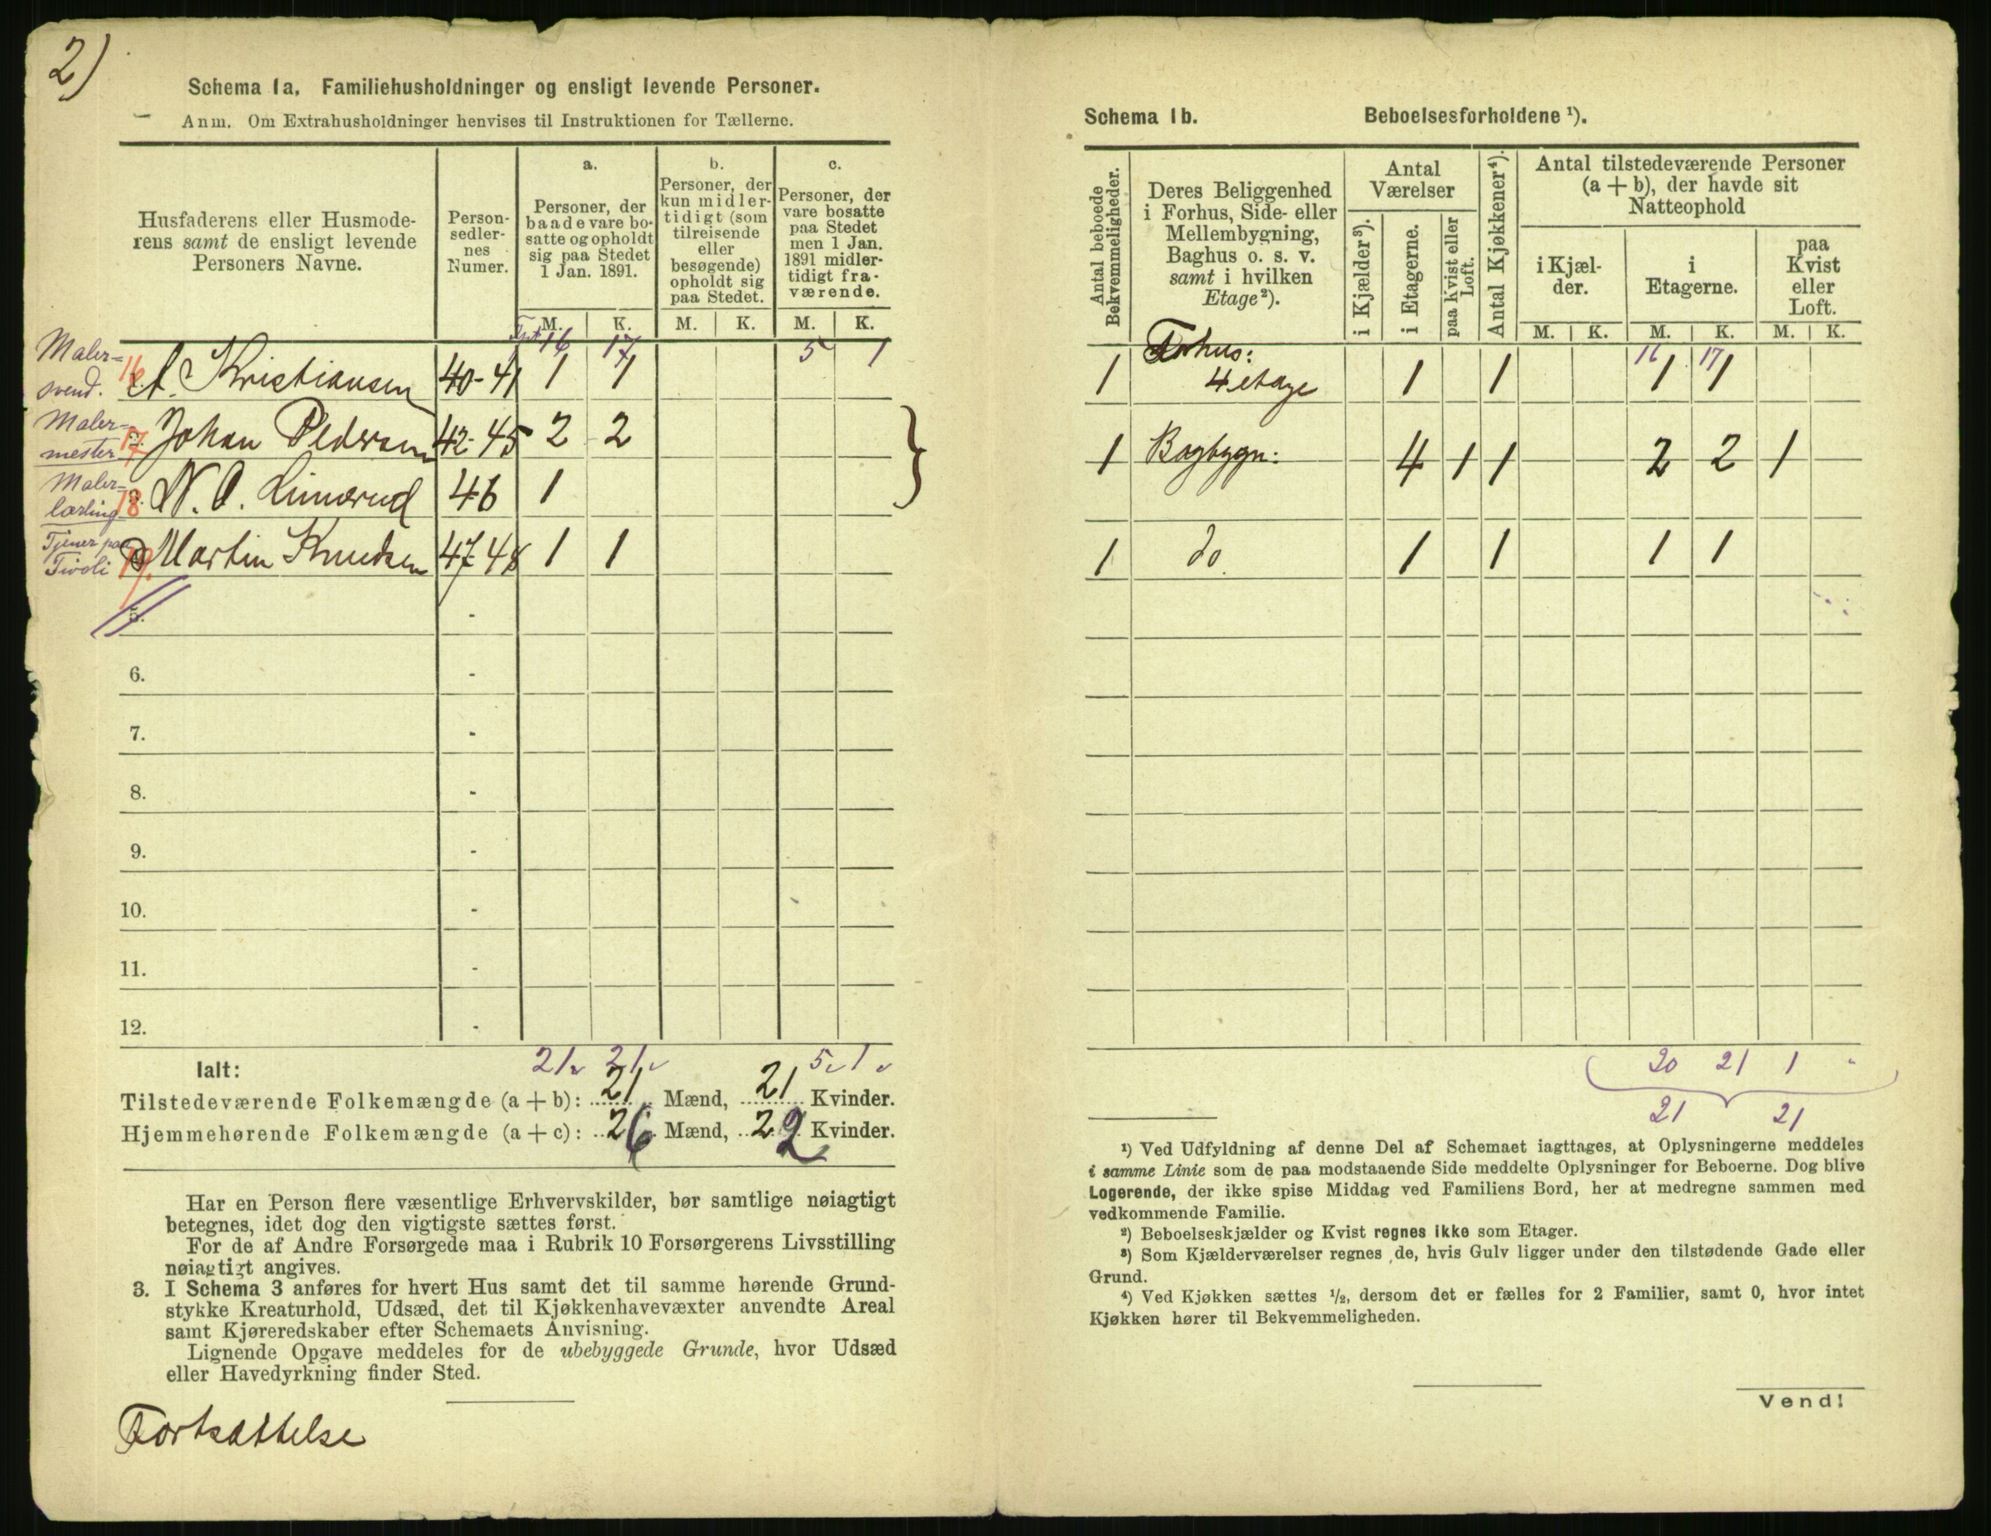 2)
Schema 1a. Familiehusholdninger og ensligt levende Personer.
Anm. Om Extrahusholdninger henvises til Instruktionen for Tællerne.
Husfaderens eller Husmode-
rens samt de ensligt levende
Personers Navne.
Person-
sedler-
nes
Numer.
a.
Personer, der
baade vare bo-
satte og opholdt
sig paa Stedet
1 Jan. 1891.
b.
Personer, der
kun midler-
tidigt (som
tilreisende
eller
besøgende)
opholdt sig
paa Stedet.
c.
Personer, der
vare bosatte
paa Stedet
men 1 Jan.
1891 midler-
tidigt fra-
værende.
M. K. M. K. M. K.
16 17 5 1
Maler-
svend. 16 A. Kristiansen 40-41 1 1
Maler-
mester 17 Johan Pedersen 42-45 2 2
Maler-
lærling 18 N. O. Limerud 46 1
Tjener paa
Tivoli 19. Martin Knudsen 47-48 1 1
5. -
6. -
7. -
8. -
9. -
10. -
11. -
12. -
Ialt: 21 21 5 1
Tilstedeværende Folkemængde (a + b): 21 Mænd, 21 Kvinder.
Hjemmehørende Folkemængde (a + c): 26 Mænd, 22 Kvinder.
Har en Person flere væsentlige Erhvervskilder, bør samtlige nøiagtigt
betegnes, idet dog den vigtigste sættes først.
For de af Andre Forsørgede maa i Rubrik 10 Forsørgerens Livsstilling
nøiagtigt angives.
3. I Schema 3 anføres for hvert Hus samt det til samme hørende Grund-
stykke Kreaturhold, Udsæd, det til Kjøkkenhavevæxter anvendte Areal
samt Kjøreredskaber efter Schemaets Anvisning.
Lignende Opgave meddeles for de ubebyggede Grunde, hvor Udsæd
eller Havedyrkning finder Sted.
Fortsættelse
Schema 1b. Beboelsesforholdene ¹).
Antal beboede
Bekvemmeligheder.
Deres Beliggenhed
i Forhus, Side- eller
Mellembygning,
Baghus o. s. v.
samt i hvilken
Etage ²).
Antal
Værelser
i Kjælder ³).
i Etagerne.
paa Kvist eller
Loft.
Antal Kjøkkener ⁴).
Antal tilstedeværende Personer
(a + b), der havde sit
Natteophold
i Kjæl-
der.
i
Etagerne.
paa
Kvist
eller
Loft.
M. K. M. K. M. K.
16 17
1 Forhus:
4 etage 1 1 1 1
1 Bagbygn: 4 1 1 2 2 1
1 do. 1 1 1 1
20 21 1
21 21
¹) Ved Udfyldning af denne Del af Schemaet iagttages, at Oplysningerne meddeles
i samme Linie som de paa modstaaende Side meddelte Oplysninger for Beboerne. Dog blive
Logerende, der ikke spise Middag ved Familiens Bord, her at medregne sammen med
vedkommende Familie.
²) Beboelseskjælder og Kvist regnes ikke som Etager.
³) Som Kjælderværelser regnes de, hvis Gulv ligger under den tilstødende Gade eller
Grund.
⁴) Ved Kjøkken sættes ½, dersom det er fælles for 2 Familier, samt 0, hvor intet
Kjøkken hører til Bekvemmeligheden.
Vend!